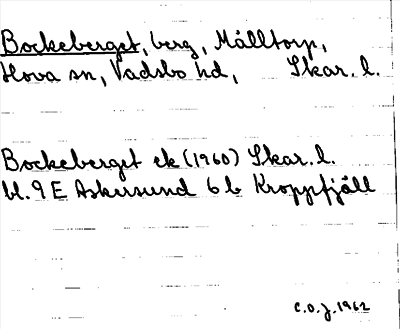 Bockeberget, berg, Målltorp,
Hova sn, Vadsbo hd, Skar. l.
Bockeberget ek (1960) Skar. l.
bl. 9 E Askersund 6 b Kroppfjäll
C.O.J. 1962